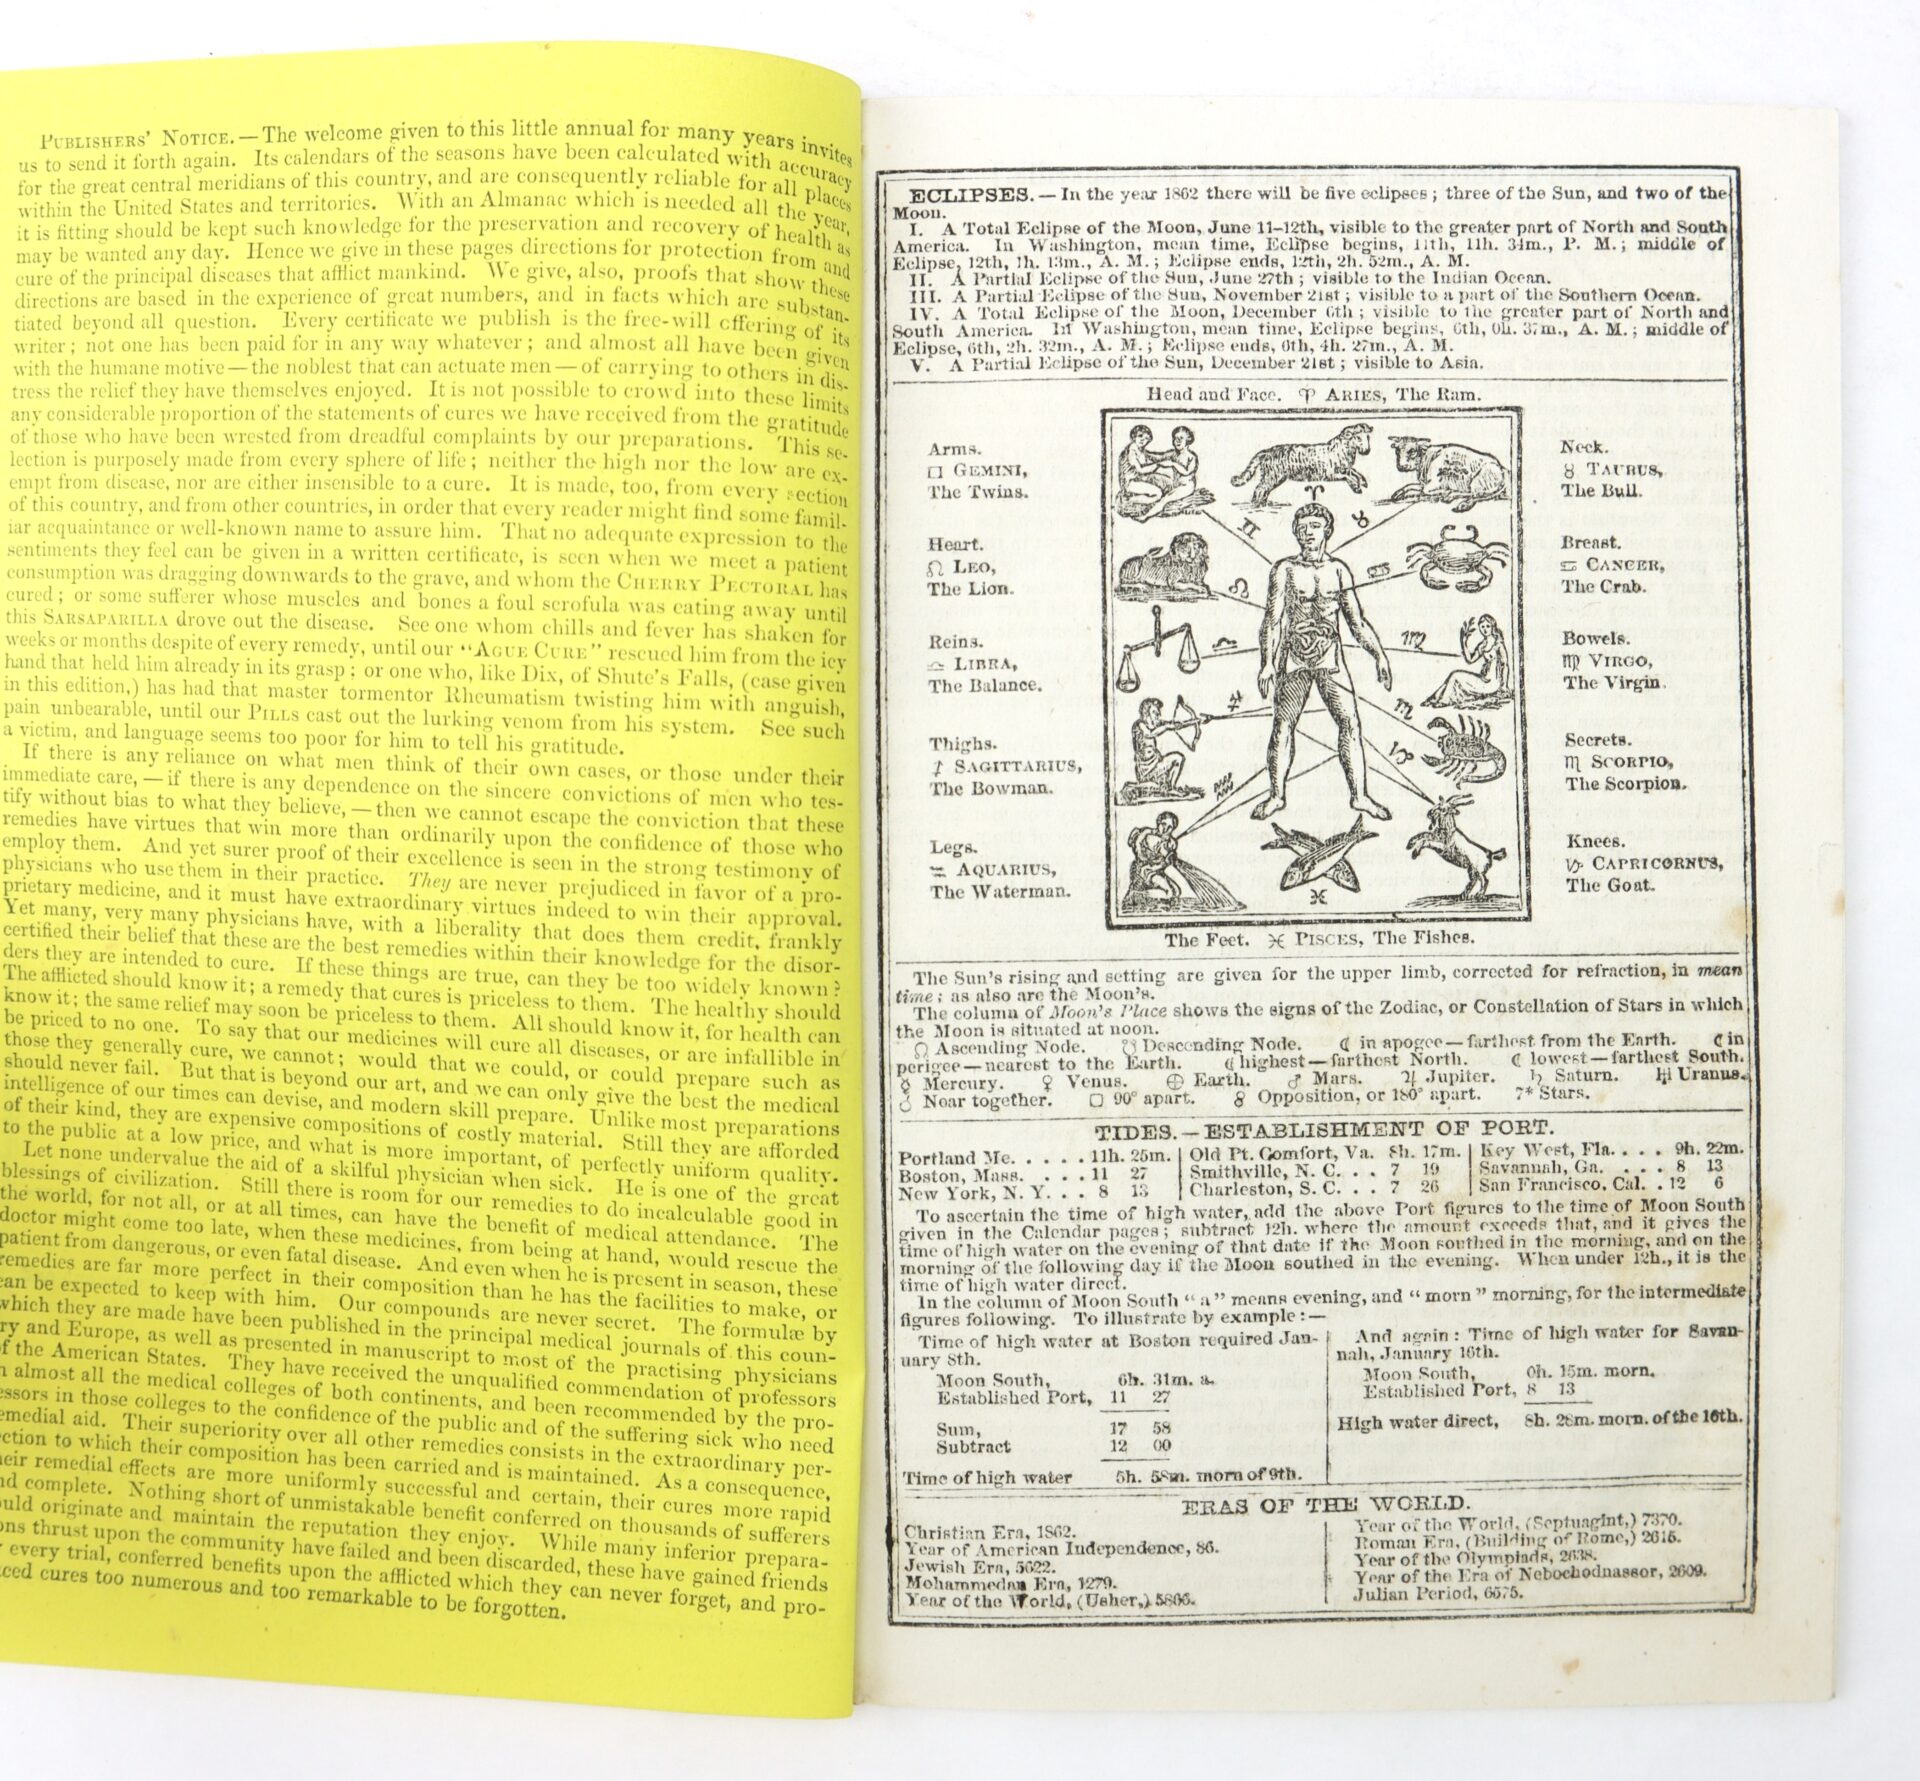 PUBLISHERS' NOTICE.—The welcome given to this little annual for many years invites
us to send it forth again. Its calendars of the seasons have been calculated with accuracy
for the great central meridians of this country, and are consequently reliable for all places
within the United States and territories. With an Almanac which is needed all the year,
it is fitting should be kept such knowledge for the preservation and recovery of health as
may be wanted any day. Hence we give in these pages directions for protection from and
cure of the principal diseases that afflict mankind. We give, also, proofs that show these
directions are based in the experience of great numbers, and in facts which are substan-
tiated beyond all question. Every certificate we publish is the free-will offering of its
writer; not one has been paid for in any way whatever; and almost all have been given
with the humane motive—the noblest that can actuate men—of carrying to others in dis-
tress the relief they have themselves enjoyed. It is not possible to crowd into these limits
any considerable proportion of the statements of cures we have received from the gratitude
of those who have been wrested from dreadful complaints by our preparations. This se-
lection is purposely made from every sphere of life; neither the high nor the low are ex-
empt from disease, nor are either insensible to a cure. It is made, too, from every section
of this country, and from other countries, in order that every reader might find some famil-
iar acquaintance or well-known name to assure him. That no adequate expression to the
sentiments they feel can be given in a written certificate, is seen when we meet a patient
consumption was dragging downwards to the grave, and whom the CHERRY PECTORAL has
cured; or some sufferer whose muscles and bones a foul scrofula was eating away until
this SARSAPARILLA drove out the disease. See one whom chills and fever has shaken for
weeks or months despite of every remedy, until our "AGUE CURE" rescued him from the icy
hand that held him already in its grasp; or one who, like Dix, of Shute's Falls, (case given
in this edition,) has had that master tormentor Rheumatism twisting him with anguish,
pain unbearable, until our PILLS cast out the lurking venom from his system. See such
a victim, and language seems too poor for him to tell his gratitude.
If there is any reliance on what men think of their own cases, or those under their
immediate care,—if there is any dependence on the sincere convictions of men who tes-
tify without bias to what they believe,—then we cannot escape the conviction that these
remedies have virtues that win more than ordinarily upon the confidence of those who
employ them. And yet surer proof of their excellence is seen in the strong testimony of
physicians who use them in their practice. They are never prejudiced in favor of a pro-
prietary medicine, and it must have extraordinary virtues indeed to win their approval.
Yet many, very many physicians have, with a liberality that does them credit, frankly
certified their belief that these are the best remedies within their knowledge for the disor-
ders they are intended to cure. If these things are true, can they be too widely known?
The afflicted should know it; a remedy that cures is priceless to them. The healthy should
know it; the same relief may soon be priceless to them. All should know it, for health can
be priced to no one. To say that our medicines will cure all diseases, or are infallible in
those they generally cure, we cannot; would that we could, or could prepare such as
should never fail. But that is beyond our art, and we can only give the best the medical
intelligence of our times can devise, and modern skill prepare. Unlike most preparations
of their kind, they are expensive compositions of costly material. Still they are afforded
to the public at a low price, and what is more important, of perfectly uniform quality.
Let none undervalue the aid of a skilful physician when sick. He is one of the great
blessings of civilization. Still there is room for our remedies to do incalculable good in
the world, for not all, or at all times, can have the benefit of medical attendance. The
doctor might come too late, when these medicines, from being at hand, would rescue the
patient from dangerous, or even fatal disease. And even when he is present in season, these
remedies are far more perfect in their composition than he has the facilities to make, or
can be expected to keep with him. Our compounds are never secret. The formulæ by
which they are made have been published in the principal medical journals of this coun-
ry and Europe, as well as presented in manuscript to most of the practising physicians
f the American States. They have received the unqualified commendation of professors
n almost all the medical colleges of both continents, and been recommended by the pro-
essors in those colleges to the confidence of the public and of the suffering sick who need
emedial aid. Their superiority over all other remedies consists in the extraordinary per-
ction to which their composition has been carried and is maintained. As a consequence,
eir remedial effects are more uniformly successful and certain, their cures more rapid
nd complete. Nothing short of unmistakable benefit conferred on thousands of sufferers
ould originate and maintain the reputation they enjoy. While many inferior prepara-
ons thrust upon the community have failed and been discarded, these have gained friends
every trial, conferred benefits upon the afflicted which they can never forget, and pro-
ced cures too numerous and too remarkable to be forgotten.
ECLIPSES.—In the year 1862 there will be five eclipses; three of the Sun, and two of the
Moon.
I. A Total Eclipse of the Moon, June 11–12th, visible to the greater part of North and South
America. In Washington, mean time, Eclipse begins, 11th, 11h. 34m., P. M.; middle of
Eclipse, 12th, 1h. 13m., A. M.; Eclipse ends, 12th, 2h. 52m., A. M.
II. A Partial Eclipse of the Sun, June 27th; visible to the Indian Ocean.
III. A Partial Eclipse of the Sun, November 21st; visible to a part of the Southern Ocean.
IV. A Total Eclipse of the Moon, December 6th; visible to the greater part of North and
South America. In Washington, mean time, Eclipse begins, 6th, 0h. 37m., A. M.; middle of
Eclipse, 6th, 2h. 32m., A. M.; Eclipse ends, 6th, 4h. 27m., A. M.
V. A Partial Eclipse of the Sun, December 21st; visible to Asia.
Head and Face. ♈ ARIES, The Ram.
Arms.
□ GEMINI,
The Twins.
Heart.
♌ LEO,
The Lion.
Reins.
♎ LIBRA,
The Balance.
Thighs.
♐ SAGITTARIUS,
The Bowman.
Legs.
♒ AQUARIUS,
The Waterman.
♈
♊ ♉
♌ ♋
♎ ♍
♐ ♏
♒ ♑
♓
Neck.
♉ TAURUS,
The Bull.
Breast.
♋ CANCER,
The Crab.
Bowels.
♍ VIRGO,
The Virgin.
Secrets.
♏ SCORPIO,
The Scorpion.
Knees.
♑ CAPRICORNUS,
The Goat.
The Feet. ♓ PISCES, The Fishes.
The Sun's rising and setting are given for the upper limb, corrected for refraction, in mean
time; as also are the Moon's.
The column of Moon's Place shows the signs of the Zodiac, or Constellation of Stars in which
the Moon is situated at noon.
☊ Ascending Node. ☋ Descending Node. ☾ in apogee—farthest from the Earth. ☾ in
perigee—nearest to the Earth. ☾ highest—farthest North. ☾ lowest—farthest South.
☿ Mercury. ♀ Venus. ⊕ Earth. ♂ Mars. ♃ Jupiter. ♄ Saturn. ♅ Uranus.
☌ Near together. □ 90° apart. ☍ Opposition, or 180° apart. 7* Stars.
TIDES.—ESTABLISHMENT OF PORT.
Portland Me. . . . . 11h. 25m. Old Pt. Comfort, Va. 8h. 17m. Key West, Fla. . . . 9h. 22m.
Boston, Mass. . . . 11 27 Smithville, N. C. . . 7 19 Savannah, Ga. . . . 8 13
New York, N. Y. . . 8 13 Charleston, S. C. . . 7 26 San Francisco, Cal. . 12 6
To ascertain the time of high water, add the above Port figures to the time of Moon South
given in the Calendar pages; subtract 12h. where the amount exceeds that, and it gives the
time of high water on the evening of that date if the Moon southed in the morning, and on the
morning of the following day if the Moon southed in the evening. When under 12h., it is the
time of high water direct.
In the column of Moon South "a" means evening, and "morn" morning, for the intermediate
figures following. To illustrate by example:—
Time of high water at Boston required Jan-
uary 8th.
Moon South, 6h. 31m. a.
Established Port, 11 27
Sum, 17 58
Subtract 12 00
Time of high water 5h. 58m. morn of 9th.
And again: Time of high water for Savan-
nah, January 16th.
Moon South, 0h. 15m. morn.
Established Port, 8 13
High water direct, 8h. 28m. morn. of the 16th.
ERAS OF THE WORLD.
Christian Era, 1862.
Year of American Independence, 86.
Jewish Era, 5622.
Mohammedan Era, 1279.
Year of the World, (Usher,) 5866.
Year of the World, (Septuagint,) 7370.
Roman Era, (Building of Rome,) 2615.
Year of the Olympiads, 2638.
Year of the Era of Nebochodnassor, 2609.
Julian Period, 6575.